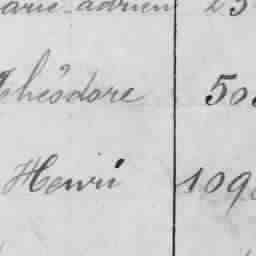 arie adrien 25
Théodore 50
Henri 109